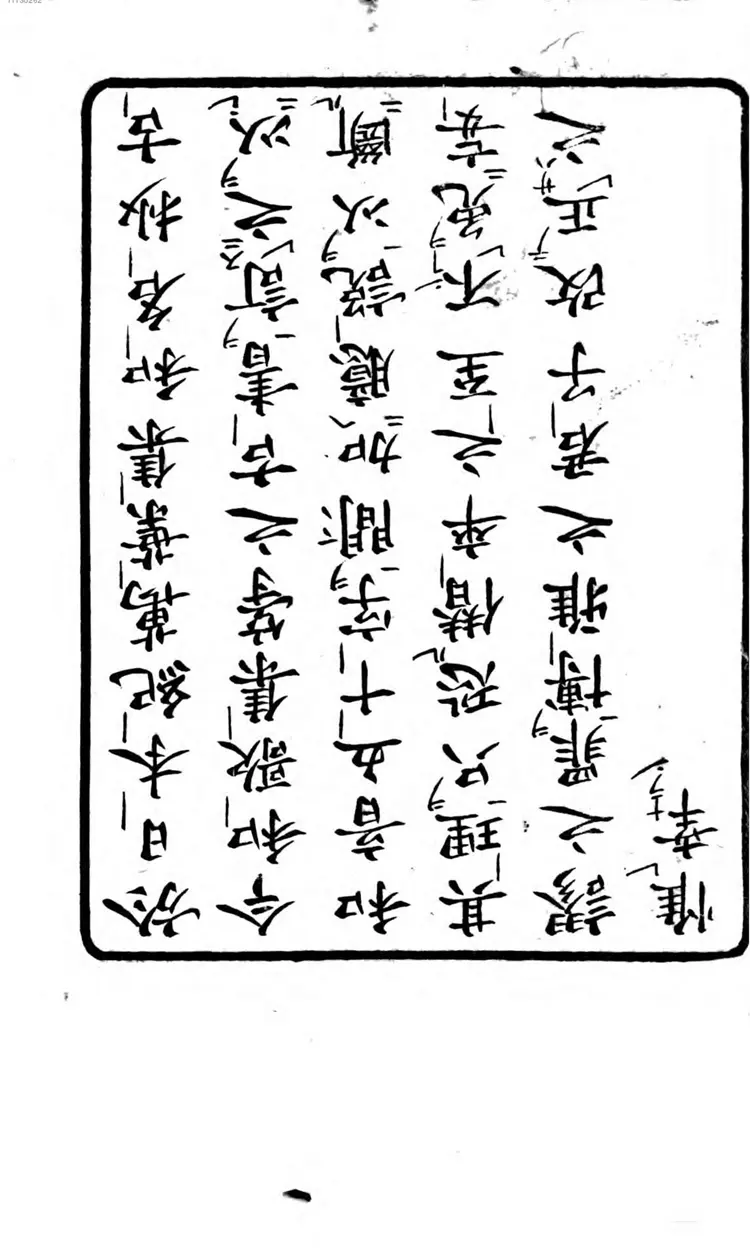 於日本紀萬葉集和名抄古
今和歌集等之古書訂之以
和音五十字間加臆說以斷
其理只恐僣率之至不免妄
謬之罪博雅之君子改正之
惟幸